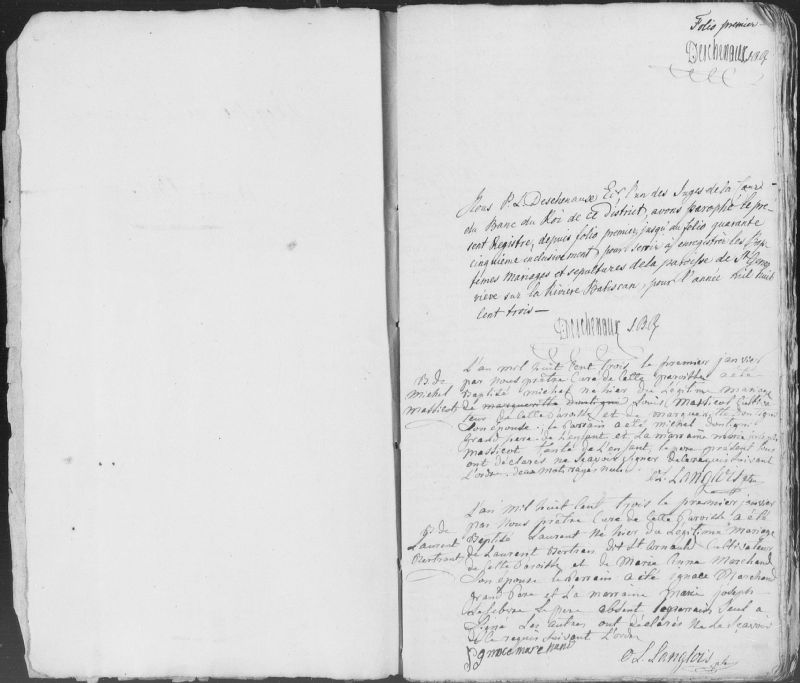 Folio premier
Deschenaux J.B.R.
Nous P. L. Deschenaux Ecr. l'un des Juges de la Cour
du Banc du Roi de ce District, avons paraphé le pre
sent Registre, depuis folio premier jusqu'au folio quarante
cinquième inclusivement pour servir à enregistrer les Bap
têmes Mariages et sepultures de la paroisse de Ste Gene
viève sur la Rivière Batiscan, pour l'année mil huit
cent trois —
Deschenaux J.B.R.
L'an mil huit cent trois le premier janvier
par nous prêtre Curé de cette paroisse a été
B. de
michel
massicot
Baptisé michel né hier du Légitime mariage
de margueritte Louis massicot Cultiva
teur de cette Paroisse et de margueritte
son épouse, le Parrain a été michel
grand pere de L'enfant et La marraine marie
massicot tante de L'enfant, le pere présent
ont déclarés ne sçavoir signer de ce requis suivant
L'ordre. deux mots rayés nuls.
O. L. Langlois ptre
L'an mil huit cent trois le premier janvier
par nous prêtre Curé de cette Paroisse a été
B. de
Laurent
Bertrant
Baptisé Laurent né hier du Légitime mariage
de Laurent Bertran dit St Arnauld Cultivateur
de cette Paroisse et de Marie Anne Marchand
son épouse le Parrain a été ignace Marchand
grand Pere et La marraine marie joseph
Lefebvre Le pere absent le parrain seul a
signé Les autres ont déclarés ne Le sçavoir
de ce requis suivant L'ordre
Ignace marchand
O. L. Langlois ptre